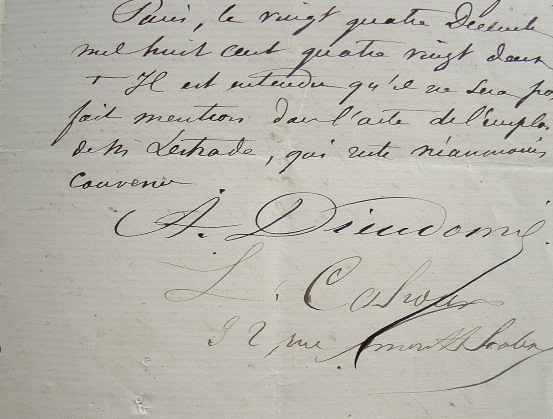 Paris, le vingt quatre Décemb
mil huit cent quatre vingt deux
+ Il est entendu qu'il ne sera pas
fait mention dans l'acte de l'emploi
de Mr Lestrade, qui reste néanmoins
convenu
A. Dieudonné
L. Cahours
92, rue